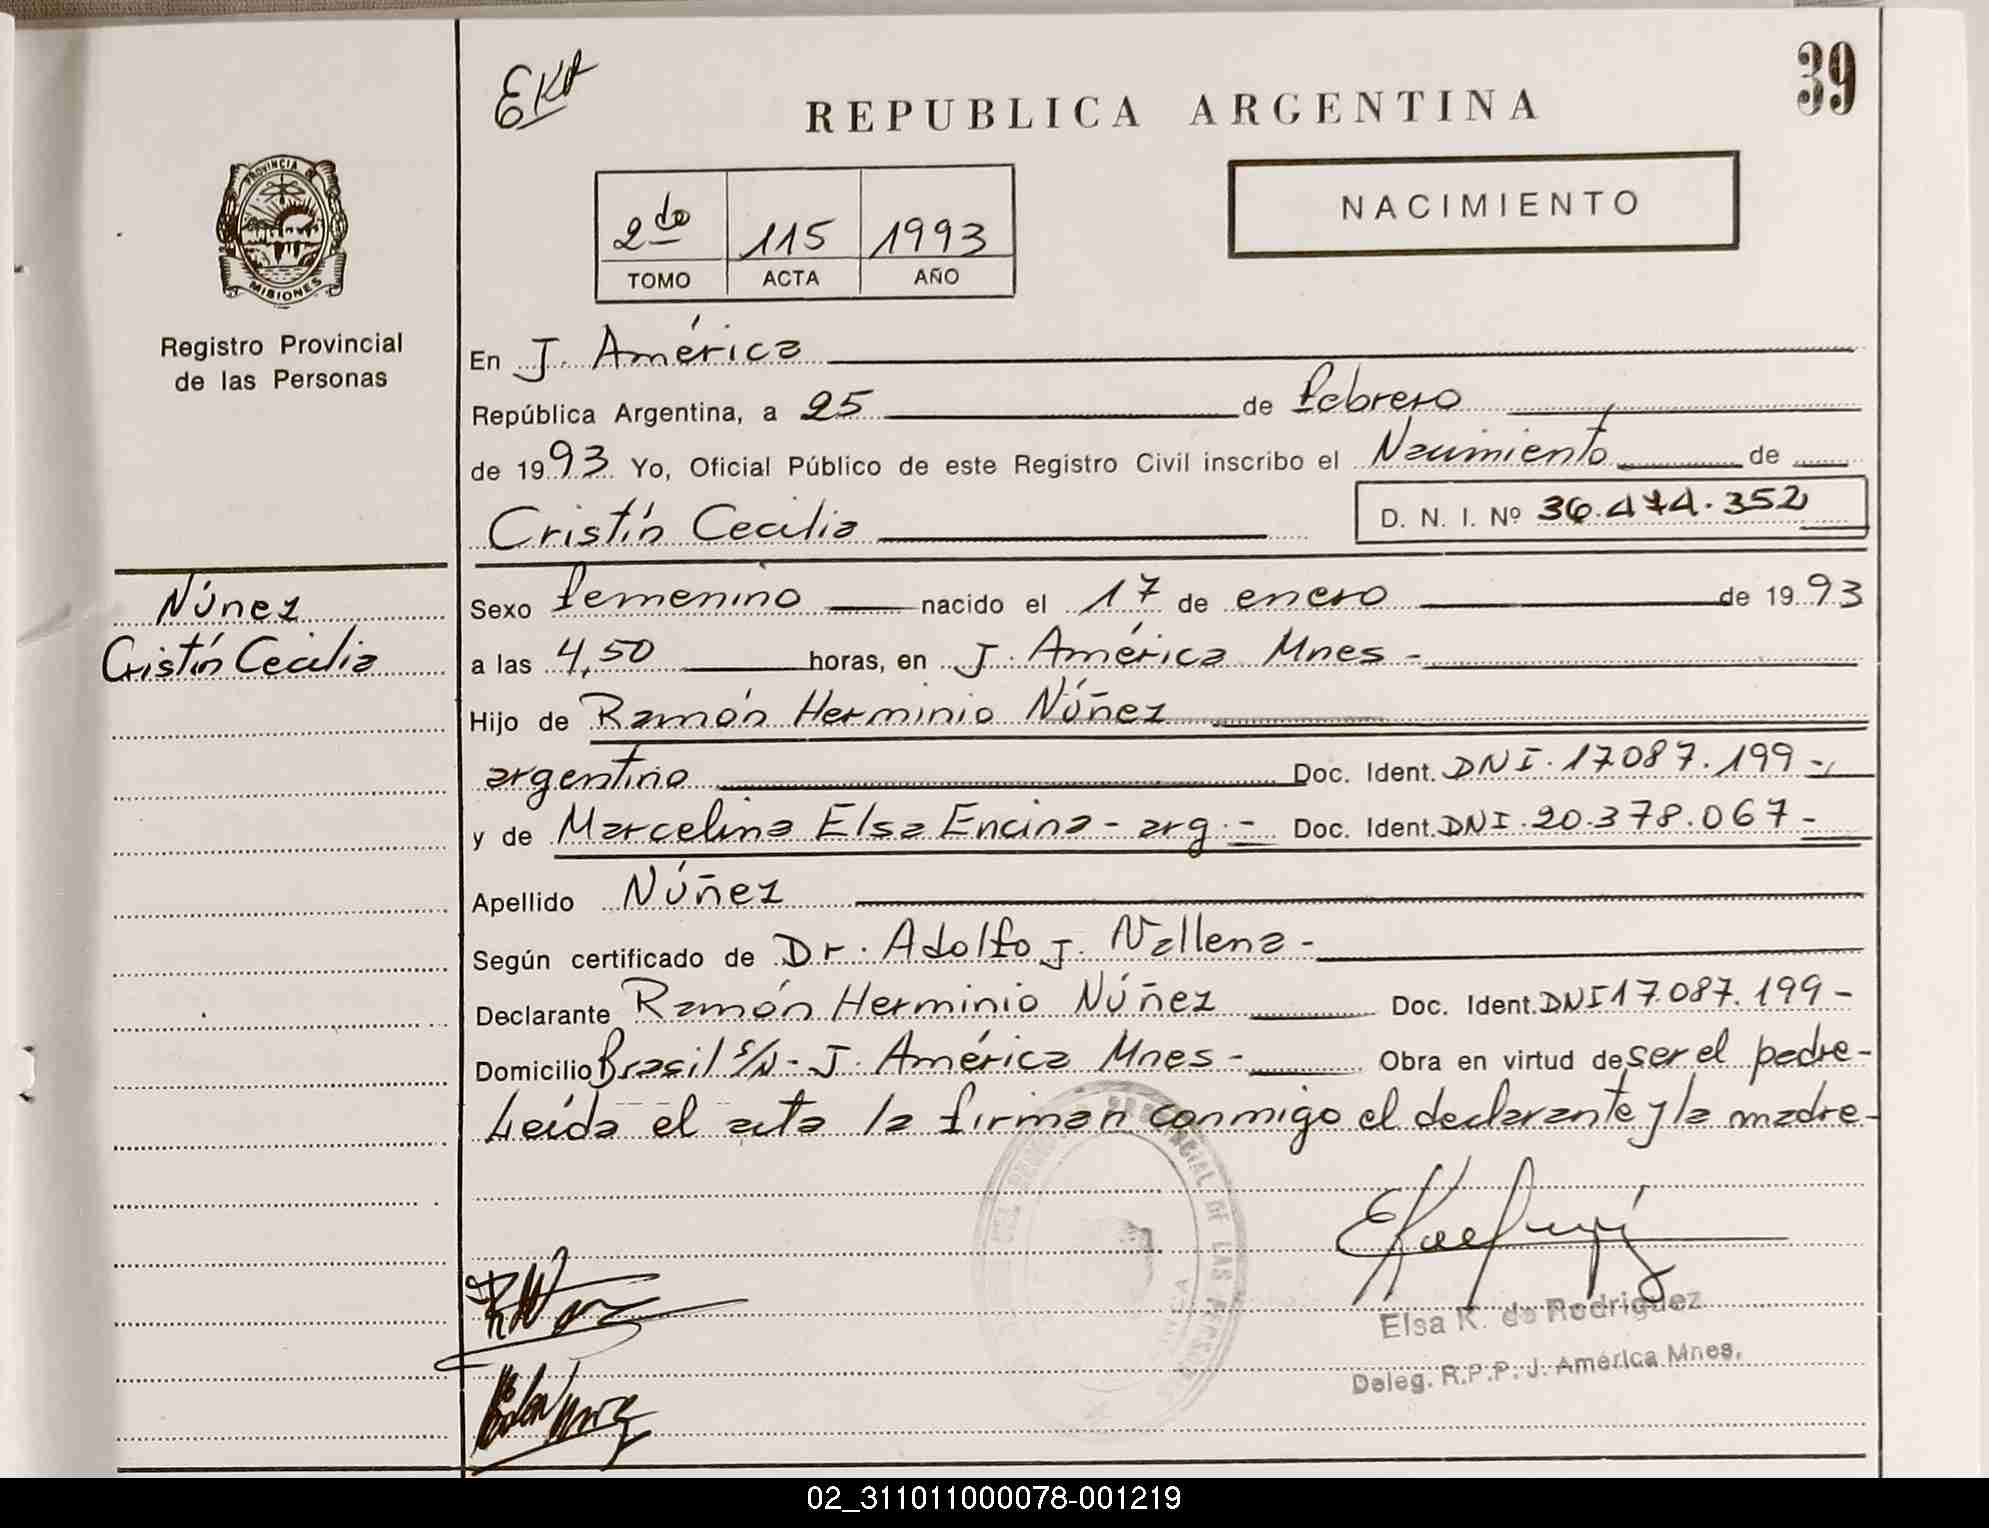 EKA
39
REPUBLICA ARGENTINA
NACIMIENTO
2do 115 1993
TOMO ACTA AÑO
PROVINCIA DE
MISIONES
Registro Provincial
de las Personas
En J. América
República Argentina, a 25 de febrero
de 1993 Yo, Oficial Público de este Registro Civil inscribo el Nacimiento de
Cristín Cecilia D. N. I. Nº 36.474.352
Núnez
Cristín Cecilia
Sexo femenino nacido el 17 de enero de 1993
a las 4,50 horas, en J. América Mnes -
Hijo de Ramón Herminio Núñez
argentino Doc. Ident. DNI. 17.087.199 -
y de Marcelina Elsa Encina - arg. - Doc. Ident. DNI. 20.378.067 -
Apellido Núñez
Según certificado de Dr. Adolfo J. Nallena -
Declarante Ramón Herminio Núñez Doc. Ident. DNI 17.087.199 -
Domicilio Brasil s/N - J. América Mnes - Obra en virtud de ser el padre -
Leída el acta la firman conmigo el declarante y la madre -
PROVINCIAL DE LAS
Elsa K. de Rodriguez
Deleg. R.P.P. J. América Mnes.
02_311011000078-001219